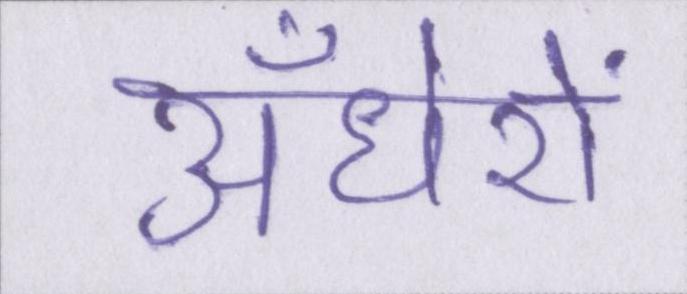 अँधेरों